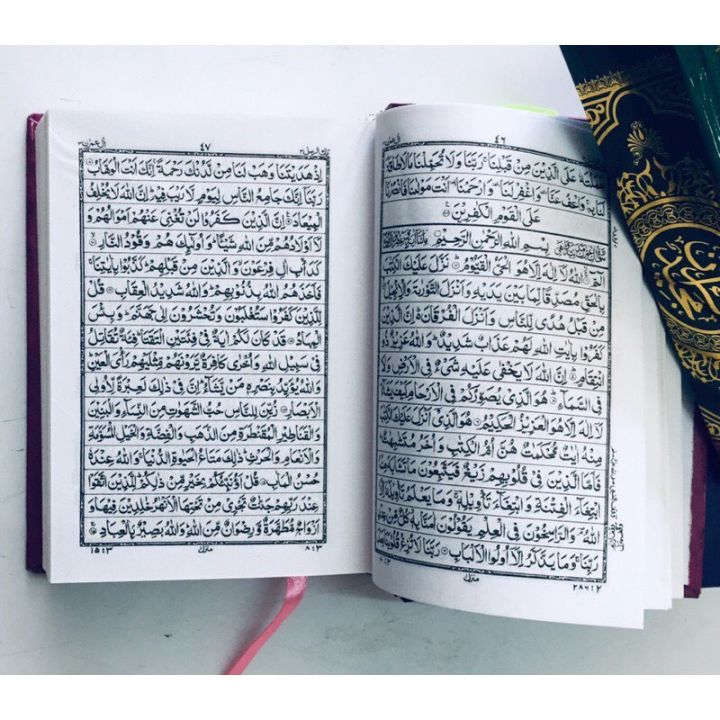 ٤٦
حَمَلْتَهٗ عَلَى الَّذِيْنَ مِنْ قَبْلِنَا ۚ رَبَّنَا وَلَا تُحَمِّلْنَا مَا لَا طَاقَةَ
لَنَا بِهٖ ۚ وَاعْفُ عَنَّا ۥ وَاغْفِرْ لَنَا ۥ وَارْحَمْنَا ۥ اَنْتَ مَوْلٰىنَا فَانْصُرْنَا
عَلَى الْقَوْمِ الْكٰفِرِيْنَ
بِسْمِ اللّٰهِ الرَّحْمٰنِ الرَّحِيْمِ
الٓمّٓ ۙ اللّٰهُ لَآ اِلٰهَ اِلَّا هُوَ الْحَيُّ الْقَيُّوْمُ ۙ نَزَّلَ عَلَيْكَ الْكِتٰبَ
بِالْحَقِّ مُصَدِّقًا لِّمَا بَيْنَ يَدَيْهِ وَاَنْزَلَ التَّوْرٰىةَ وَالْاِنْجِيْلَ ۙ
مِنْ قَبْلُ هُدًى لِّلنَّاسِ وَاَنْزَلَ الْفُرْقَانَ ۥ اِنَّ الَّذِيْنَ
كَفَرُوْا بِاٰيٰتِ اللّٰهِ لَهُمْ عَذَابٌ شَدِيْدٌ ۭ وَاللّٰهُ عَزِيْزٌ ذُو
انْتِقَامٍ ۭ اِنَّ اللّٰهَ لَا يَخْفٰى عَلَيْهِ شَيْءٌ فِي الْاَرْضِ وَلَا
فِي السَّمَآءِ ۭ هُوَ الَّذِيْ يُصَوِّرُكُمْ فِي الْاَرْحَامِ كَيْفَ يَشَآءُ ۭ
لَآ اِلٰهَ اِلَّا هُوَ الْعَزِيْزُ الْحَكِيْمُ ۭ هُوَ الَّذِيْٓ اَنْزَلَ عَلَيْكَ الْكِتٰبَ
مِنْهُ اٰيٰتٌ مُّحْكَمٰتٌ هُنَّ اُمُّ الْكِتٰبِ وَاُخَرُ مُتَشٰبِهٰتٌ ۭ
فَاَمَّا الَّذِيْنَ فِيْ قُلُوْبِهِمْ زَيْغٌ فَيَتَّبِعُوْنَ مَا تَشَابَهَ مِنْهُ
ابْتِغَآءَ الْفِتْنَةِ وَابْتِغَآءَ تَاْوِيْلِهٖ ۚ وَمَا يَعْلَمُ تَاْوِيْلَهٗٓ اِلَّا
اللّٰهُ ۘ وَالرّٰسِخُوْنَ فِي الْعِلْمِ يَقُوْلُوْنَ اٰمَنَّا بِهٖ ۙ كُلٌّ مِّنْ عِنْدِ
رَبِّنَا ۚ وَمَا يَذَّكَّرُ اِلَّآ اُولُوا الْاَلْبَابِ ۭ رَبَّنَا لَا تُزِغْ قُلُوْبَنَا بَعْدَ
٢٨٦:٢
منزل
٤٧
اٰل عمرٰن
اِذْ هَدَيْتَنَا وَهَبْ لَنَا مِنْ لَّدُنْكَ رَحْمَةً ۚ اِنَّكَ اَنْتَ الْوَهَّابُ
رَبَّنَآ اِنَّكَ جَامِعُ النَّاسِ لِيَوْمٍ لَّا رَيْبَ فِيْهِ ۭ اِنَّ اللّٰهَ لَا يُخْلِفُ
الْمِيْعَادَ ۧ اِنَّ الَّذِيْنَ كَفَرُوْا لَنْ تُغْنِيَ عَنْهُمْ اَمْوَالُهُمْ وَ
لَآ اَوْلَادُهُمْ مِّنَ اللّٰهِ شَيْـًٔا ۭ وَاُولٰٓئِكَ هُمْ وَقُوْدُ النَّارِ ۙ
كَدَاْبِ اٰلِ فِرْعَوْنَ ۙ وَالَّذِيْنَ مِنْ قَبْلِهِمْ ۭ كَذَّبُوْا بِاٰيٰتِنَا ۚ
فَاَخَذَهُمُ اللّٰهُ بِذُنُوْبِهِمْ ۭ وَاللّٰهُ شَدِيْدُ الْعِقَابِ ۭ قُلْ
لِّلَّذِيْنَ كَفَرُوْا سَتُغْلَبُوْنَ وَتُحْشَرُوْنَ اِلٰى جَهَنَّمَ ۭ وَبِئْسَ
الْمِهَادُ ۭ قَدْ كَانَ لَكُمْ اٰيَةٌ فِيْ فِئَتَيْنِ الْتَقَتَا ۭ فِئَةٌ تُقَاتِلُ
فِيْ سَبِيْلِ اللّٰهِ وَاُخْرٰى كَافِرَةٌ يَّرَوْنَهُمْ مِّثْلَيْهِمْ رَاْيَ الْعَيْنِ ۭ
وَاللّٰهُ يُؤَيِّدُ بِنَصْرِهٖ مَنْ يَّشَآءُ ۭ اِنَّ فِيْ ذٰلِكَ لَعِبْرَةً لِّاُولِي
الْاَبْصَارِ ۭ زُيِّنَ لِلنَّاسِ حُبُّ الشَّهَوٰتِ مِنَ النِّسَآءِ وَالْبَنِيْنَ
وَالْقَنَاطِيْرِ الْمُقَنْطَرَةِ مِنَ الذَّهَبِ وَالْفِضَّةِ وَالْخَيْلِ الْمُسَوَّمَةِ
وَالْاَنْعَامِ وَالْحَرْثِ ۭ ذٰلِكَ مَتَاعُ الْحَيٰوةِ الدُّنْيَا ۚ وَاللّٰهُ عِنْدَهٗ
حُسْنُ الْمَاٰبِ ۭ قُلْ اَؤُنَبِّئُكُمْ بِخَيْرٍ مِّنْ ذٰلِكُمْ ۭ لِلَّذِيْنَ اتَّقَوْا
عِنْدَ رَبِّهِمْ جَنّٰتٌ تَجْرِيْ مِنْ تَحْتِهَا الْاَنْهٰرُ خٰلِدِيْنَ فِيْهَا وَ
اَزْوَاجٌ مُّطَهَّرَةٌ وَّرِضْوَانٌ مِّنَ اللّٰهِ ۭ وَاللّٰهُ بَصِيْرٌۢ بِالْعِبَادِ ۚ
٨:٣
منزل
١٥:٣